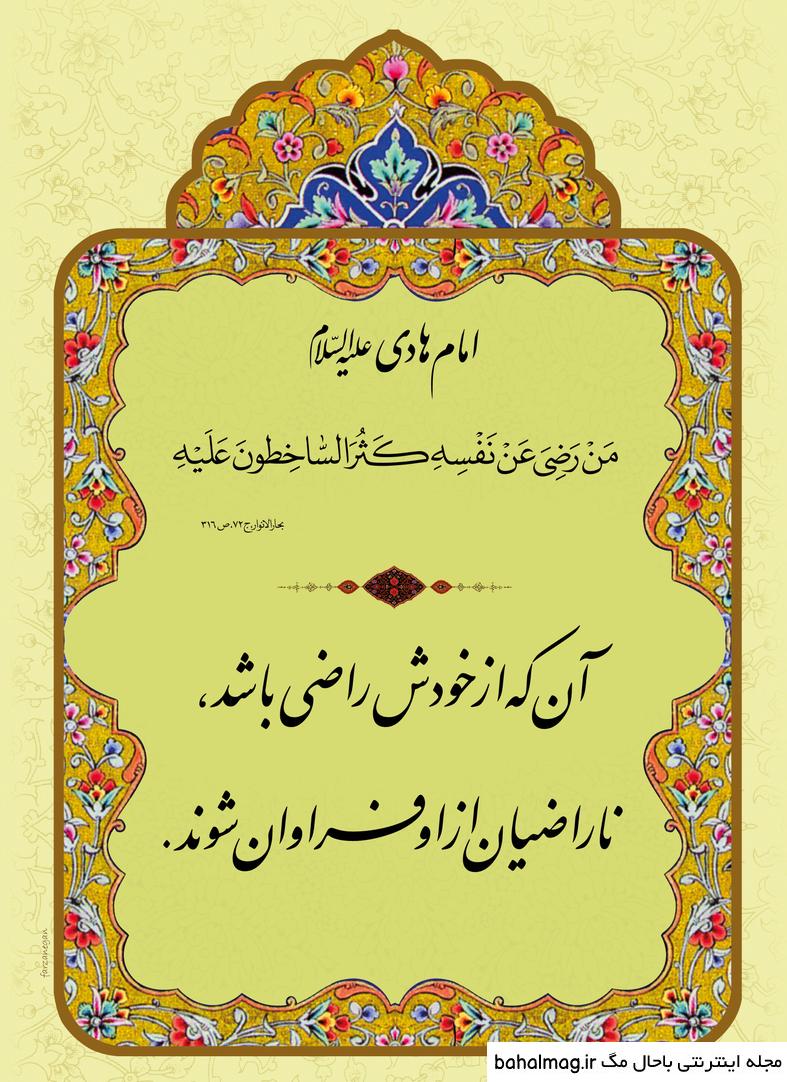 امام هادی علیه‌السّلام
مَنْ رَضِیَ عَنْ نَفْسِهِ کَثُرَ السّاخِطونَ عَلَیْهِ
بحارالانوار،ج۷۲،ص۳۱۶
آن که از خودش راضی باشد،
ناراضیان از او فراوان شوند.
farzanegan
مجله اینترنتی باحال مگ bahalmag.ir